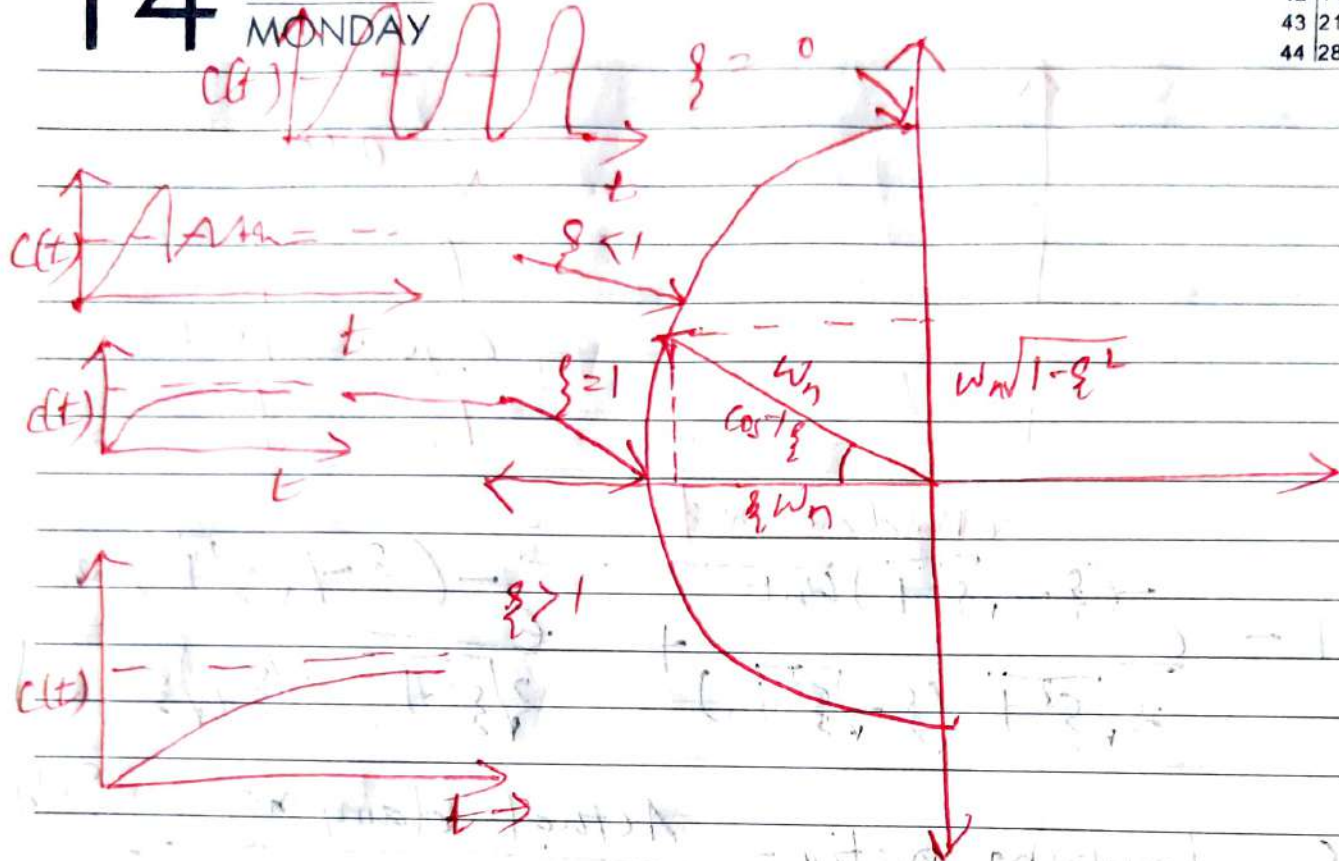 14
MONDAY
43 21
44 28
C(t)
ξ = 0
t
C(t)
ξ < 1
t
C(t)
ξ = 1
t
ωn
cos⁻¹ξ
ωn√1-ξ²
ξωn
ξ > 1
C(t)
t →